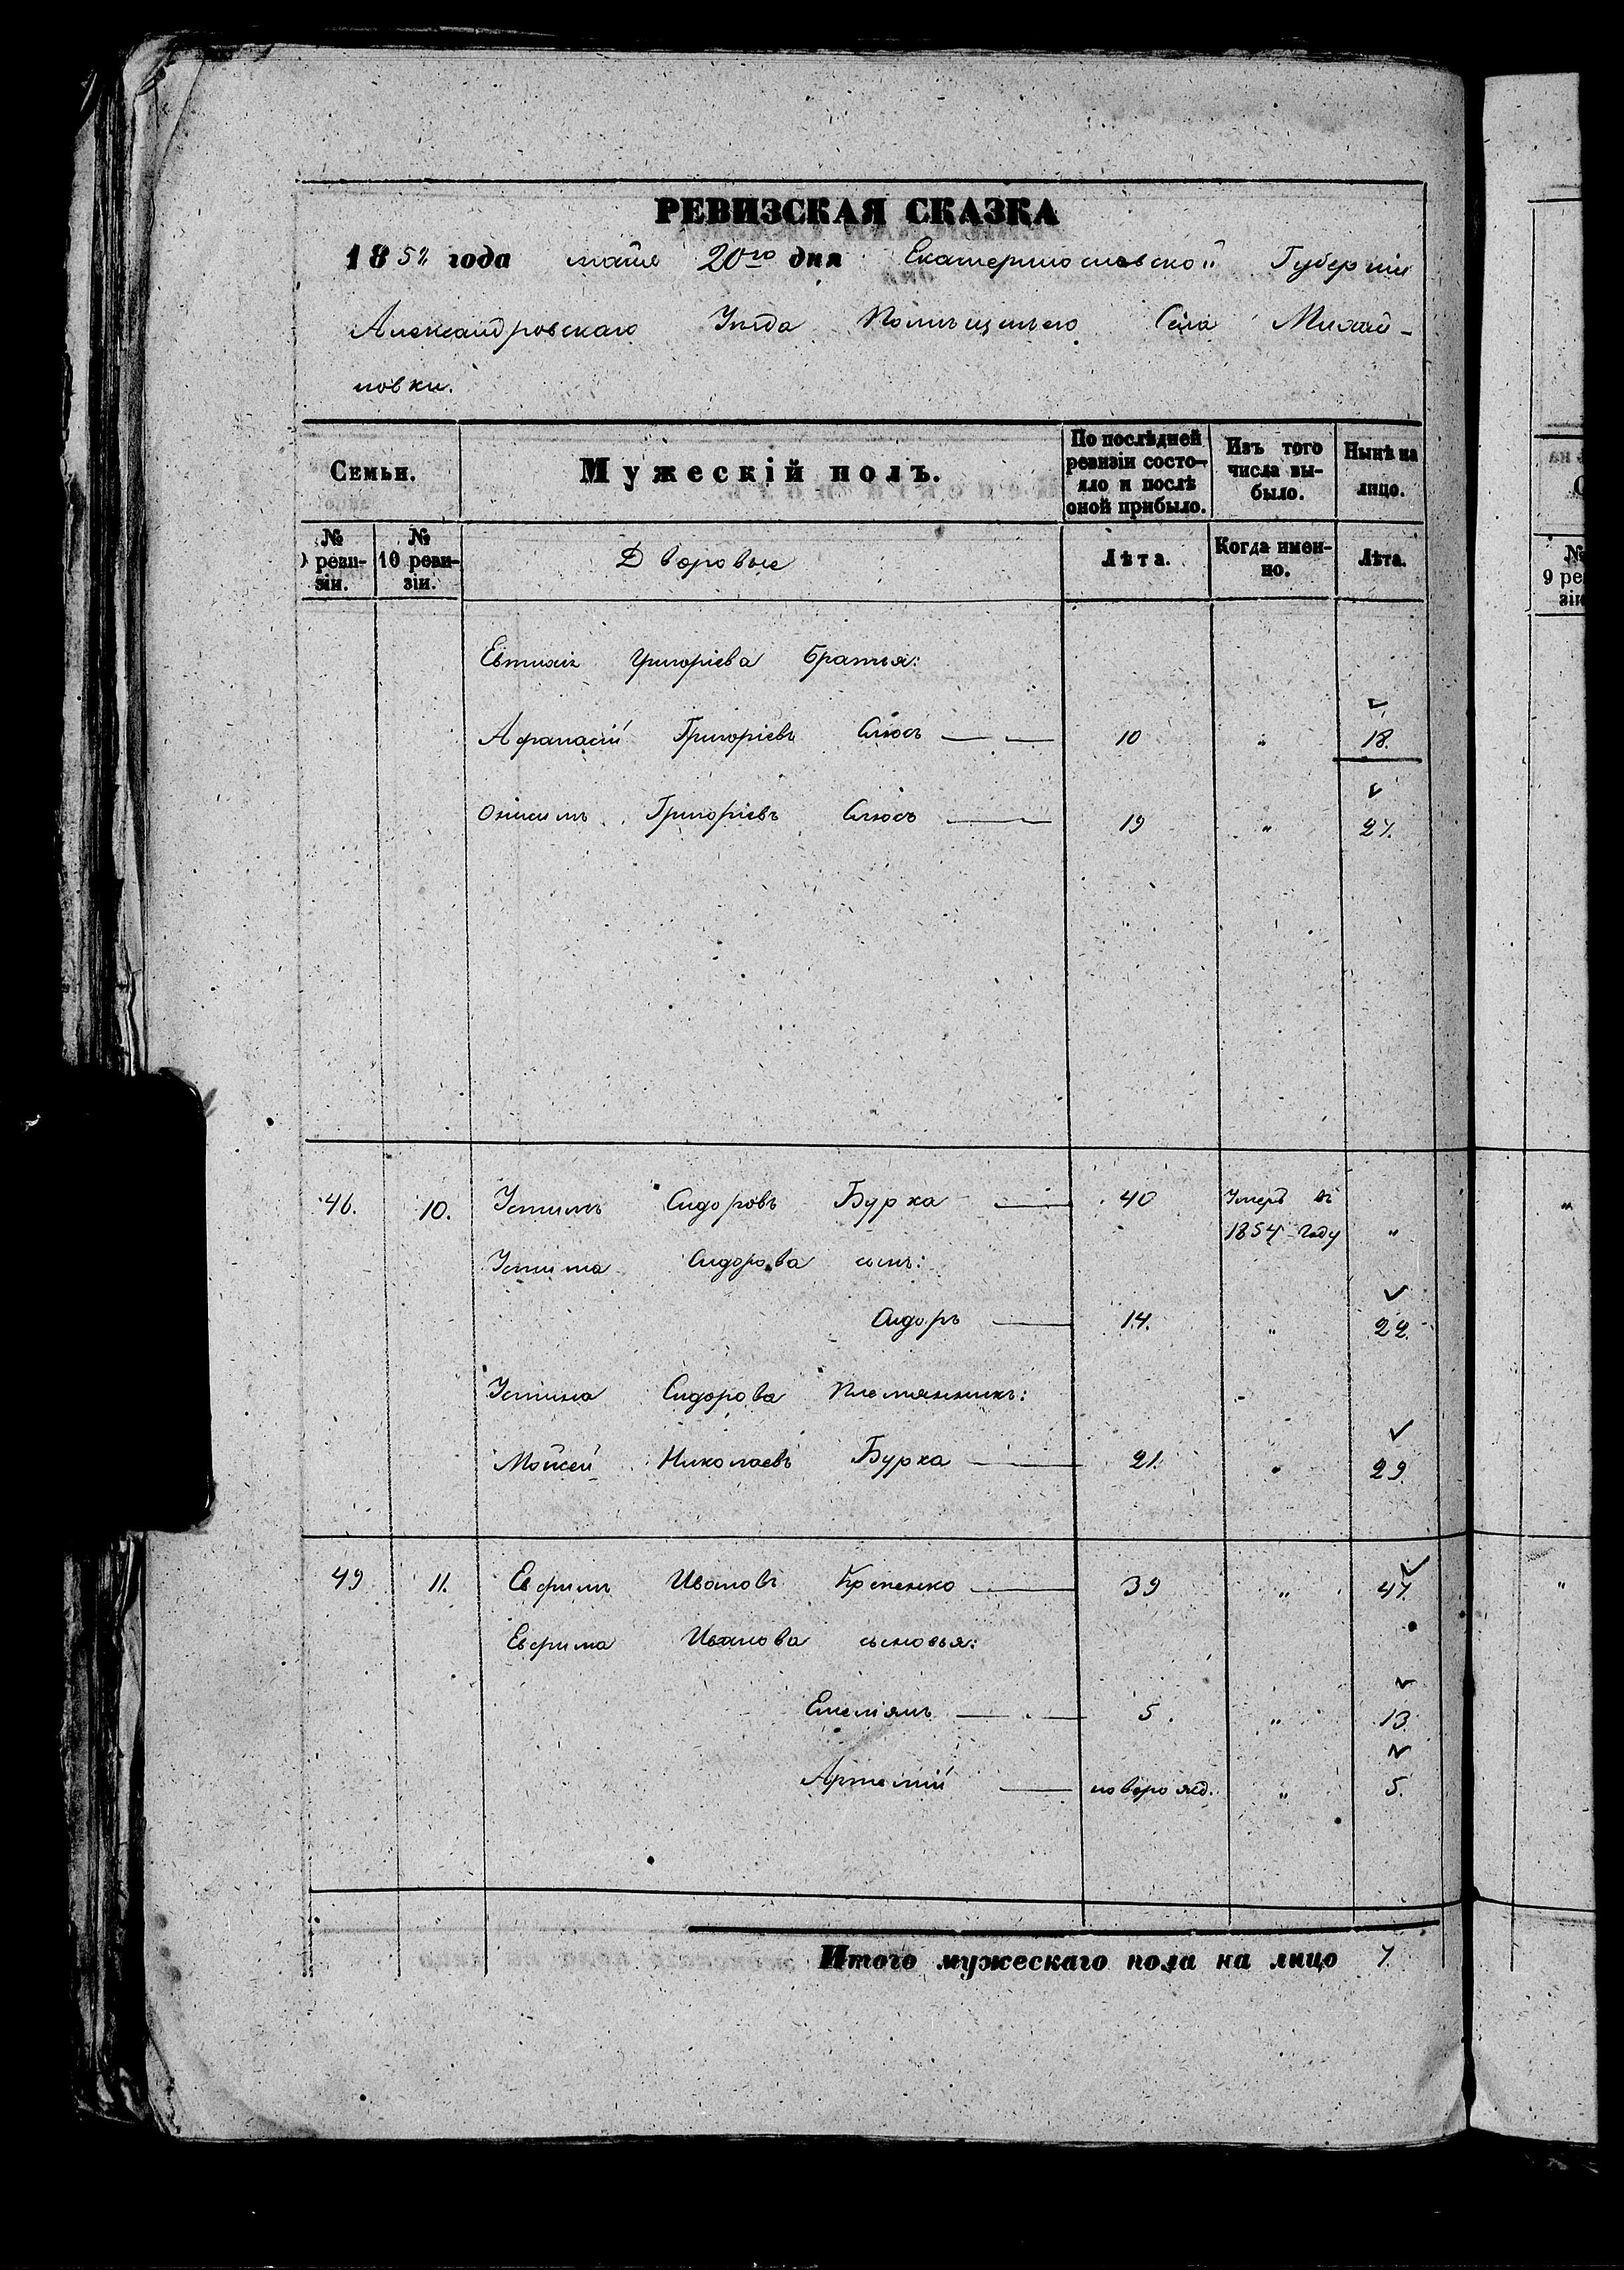 РЕВИЗСКАЯ СКАЗКА
1858 года маия 20го дня Екатеринославской Губерніи
Александровскаго Уѣзда Помѣщичьего Села Михай-
ловки.
Семьи. Мужескій полъ. По послѣдней ревизіи состо-яло и послѣ оной прибыло. Изъ того числа вы-было. Нынѣ на лицо.
№ 9 реви-зіи. № 10 реви-зіи. Дворовые Лѣта. Когда имен-но. Лѣта.
Евтихія Григоріева братья:
Афанасій Григоріевъ Слюсъ — — 10 „ 18.
Онисимъ Григоріевъ Слюсъ — 19 „ 27.
46. 10. Устимъ Сидоровъ Бурка — 40 Умеръ въ
1854 году „
Устима Сидорова сынъ:
Сидоръ — 14. „ 22.
Устима Сидорова Племянникъ:
Мойсей Николаевъ Бурка — 21. „ 29.
49 11. Ефимъ Ивановъ — 39 „ 47.
Ефима Иванова сыновья:
Емеліянъ — 5. „ 13.
Артемій — новорожд. „ 5.
Итого мужескаго пола на лицо 7.
№
9 рев
зі